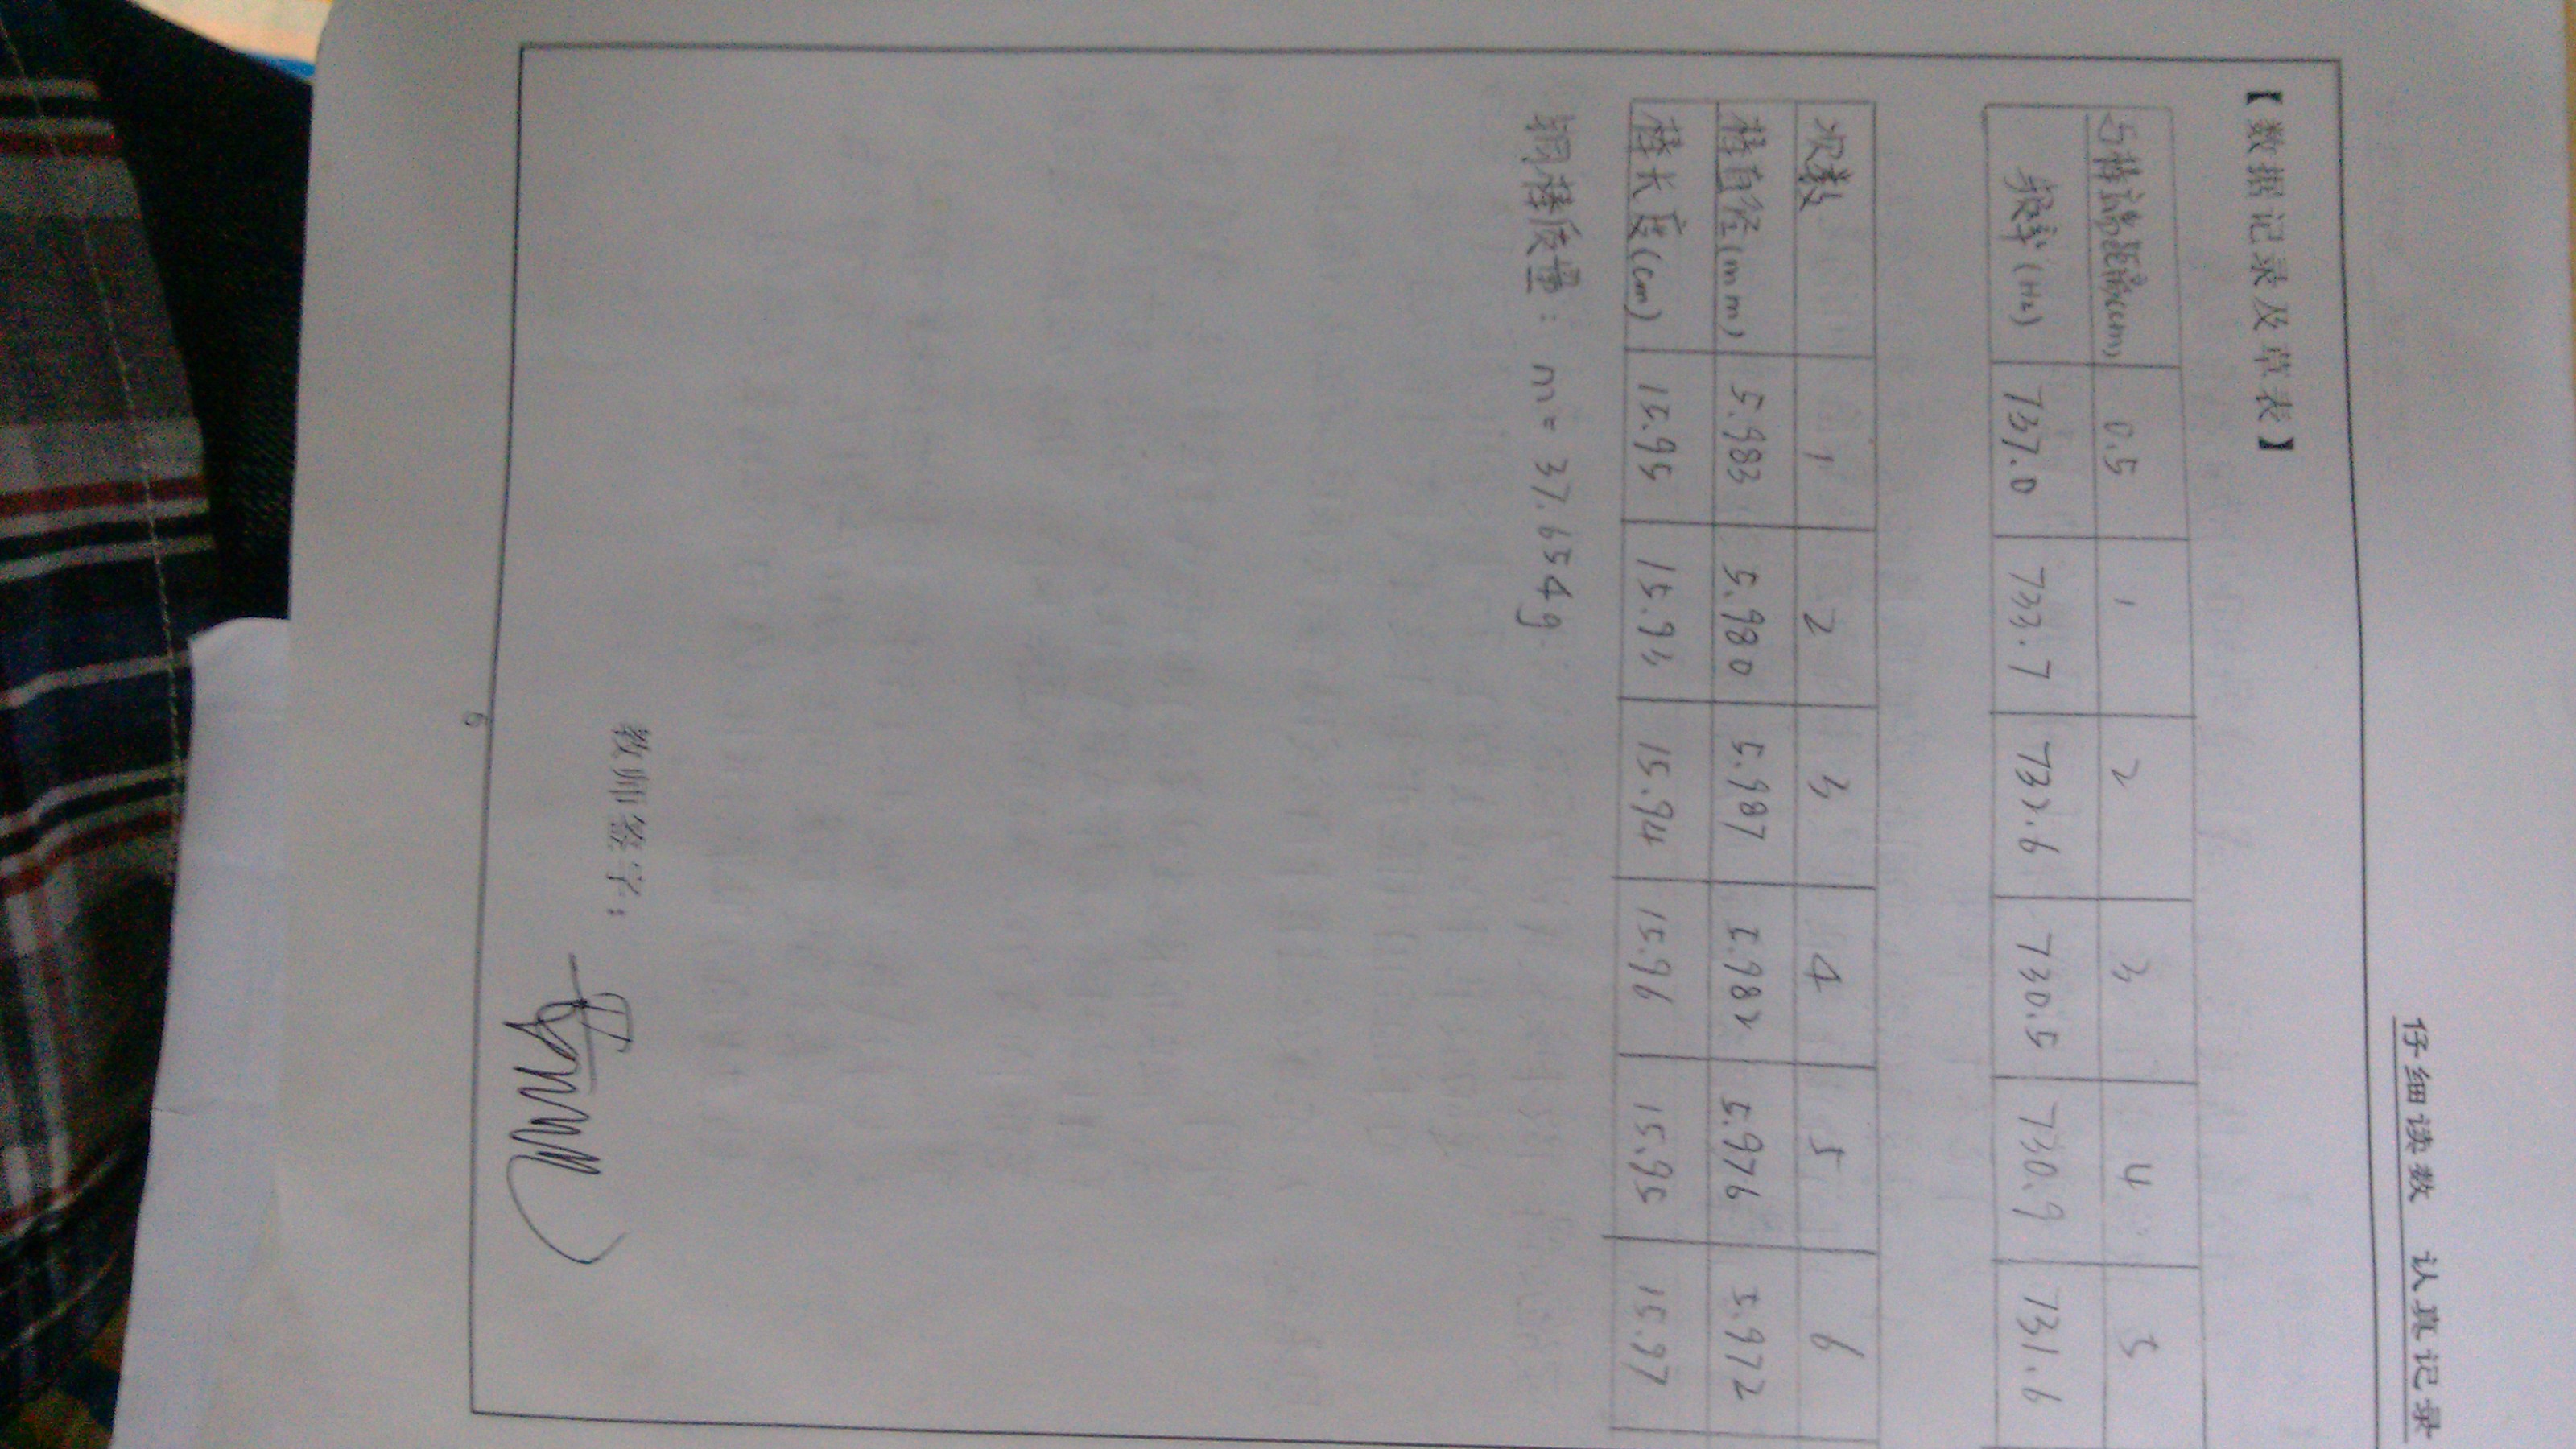 仔细读数 认真记录
【数据记录及草表】
与棒端距离(cm) 0.5 1 2 3 4 5
频率(Hz) 737.0 733.7 732.6 730.5 730.9 731.6
次数 1 2 3 4 5 6
棒直径(mm) 5.983 5.980 5.987 5.982 5.976 5.972
棒长度(cm) 15.95 15.93 15.94 15.96 15.95 15.97
铜棒质量: m = 37.654g
教师签字:
6